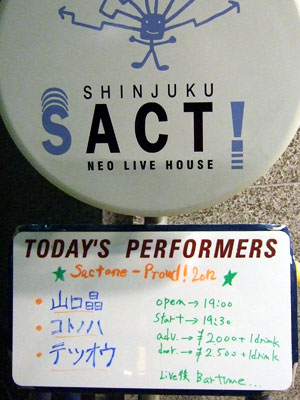 SHINJUKU
SACT!
NEO LIVE HOUSE
TODAY'S PERFORMERS
★ Sactone - Proud! 2012 ★
• 山口晶
• コトノハ
• テツオウ
open → 19:00
Start → 19:30
adv. → ¥2000 + 1drink
door. → ¥2.500 + 1drink
Live後 Bar time...